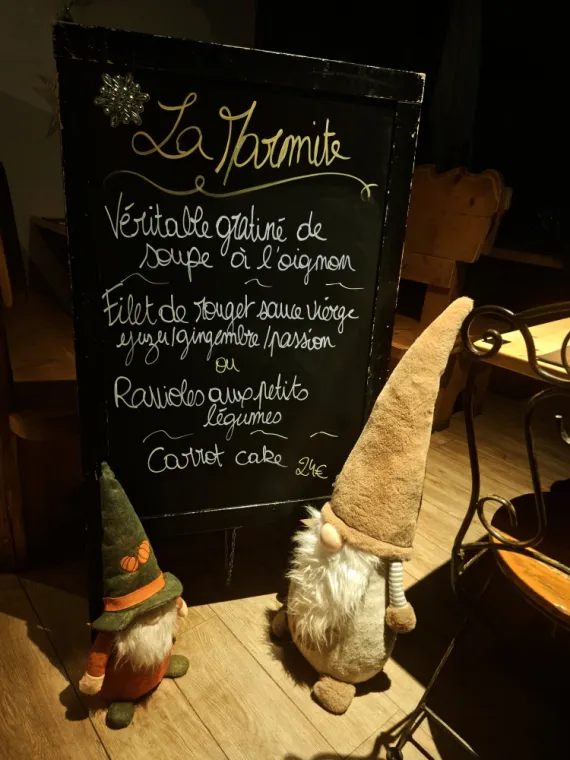 La Marmite
Véritable gratiné de
soupe à l'oignon
Filet de rouget sauce vierge
yuzu/gingembre/passion
ou
Ravioles aux petits
légumes
Carrot cake 24€